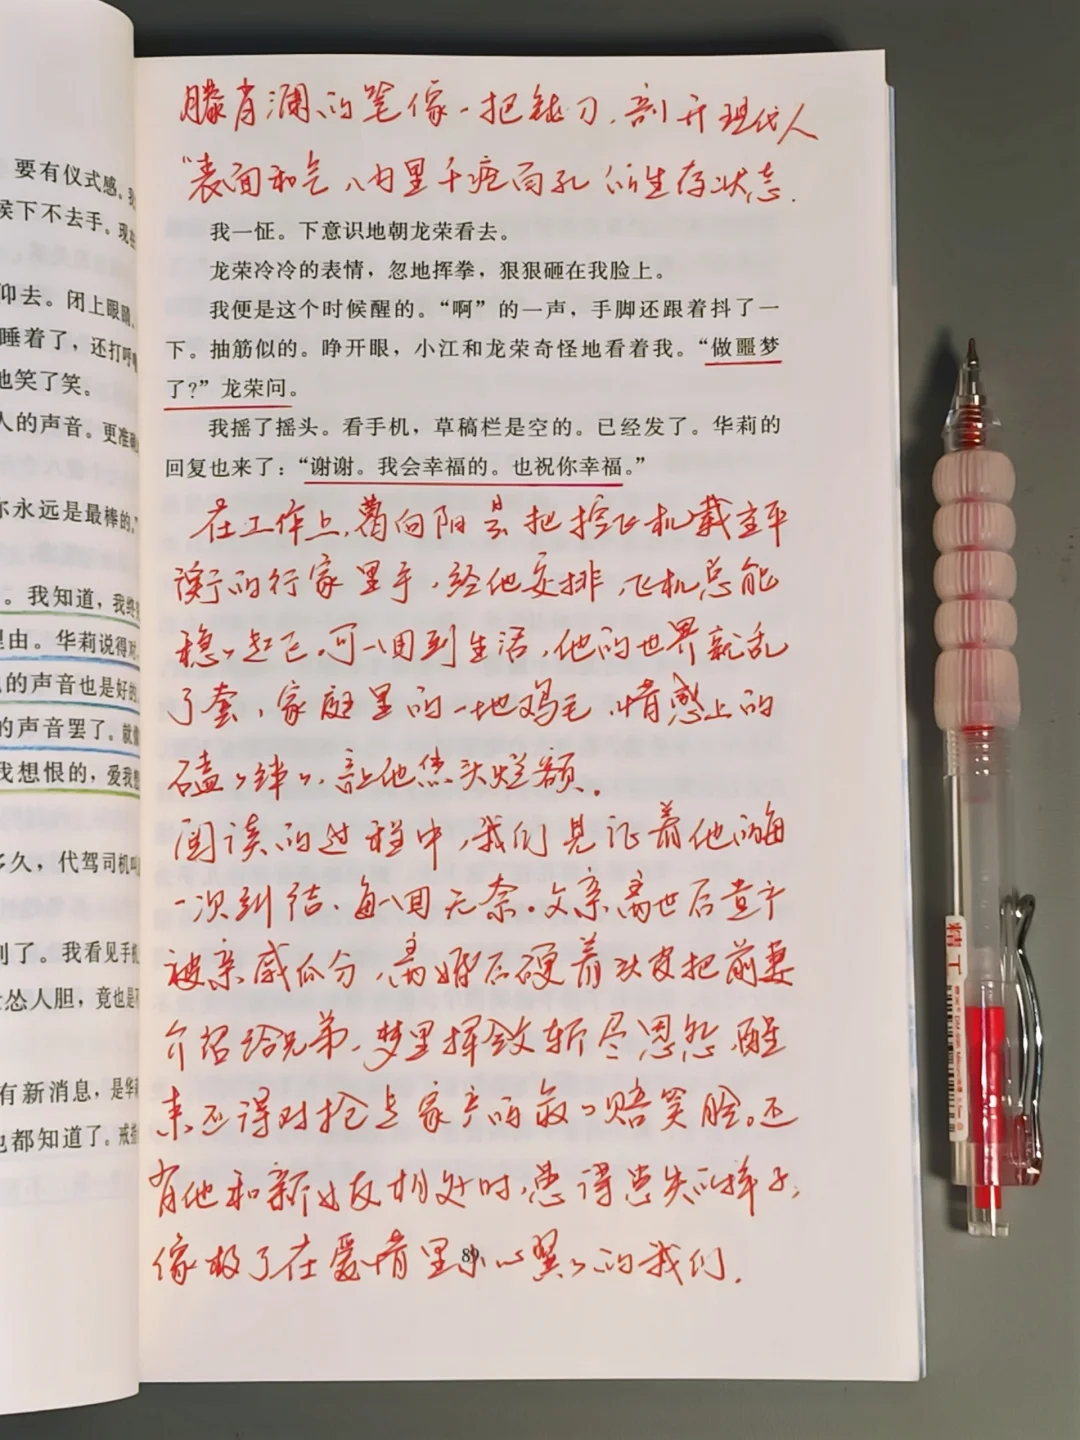 要有仪式感。我
侯下不去手。现在
仰去。闭上眼睛、
睡着了，还打呼噜
他笑了笑。
人的声音。更准确
你永远是最棒的，”
。我知道，我终究
理由。华莉说得对、
的声音也是好的
的声音罢了。就像
我想恨的，爱我想
多久，代驾司机叫
到了。我看见手机
怂人胆，竟也是
有新消息，是华莉
也都知道了。戒指
滕肖澜的笔像一把钝刀，剖开现代人
“表面和气，内里千疮百孔”的生存状态．
我一怔。下意识地朝龙荣看去。
龙荣冷冷的表情，忽地挥拳，狠狠砸在我脸上。
我便是这个时候醒的。“啊”的一声，手脚还跟着抖了一
下。抽筋似的。睁开眼，小江和龙荣奇怪地看着我。“做噩梦
了？”龙荣问。
我摇了摇头。看手机，草稿栏是空的。已经发了。华莉的
回复也来了：“谢谢。我会幸福的。也祝你幸福。”
在工作上，葛向阳是把控飞机载重平
衡的行家里手，经他安排，飞机总能
稳稳起飞。可一回到生活，他的世界就乱
了套，家庭里的一地鸡毛，情感上的
磕磕绊绊，让他焦头烂额．
阅读的过程中，我们见证着他的每
一次纠结、每一回无奈。父亲离世后遗产
被亲戚瓜分，离婚后硬着头皮把前妻
介绍给兄弟，梦里挥剑斩尽恩怨，醒
来还得对抢占家产的叔叔赔笑脸。还
有他和新女友相处时，患得患失的样子，
像极了在爱情里小心翼翼的我们．
89
精工